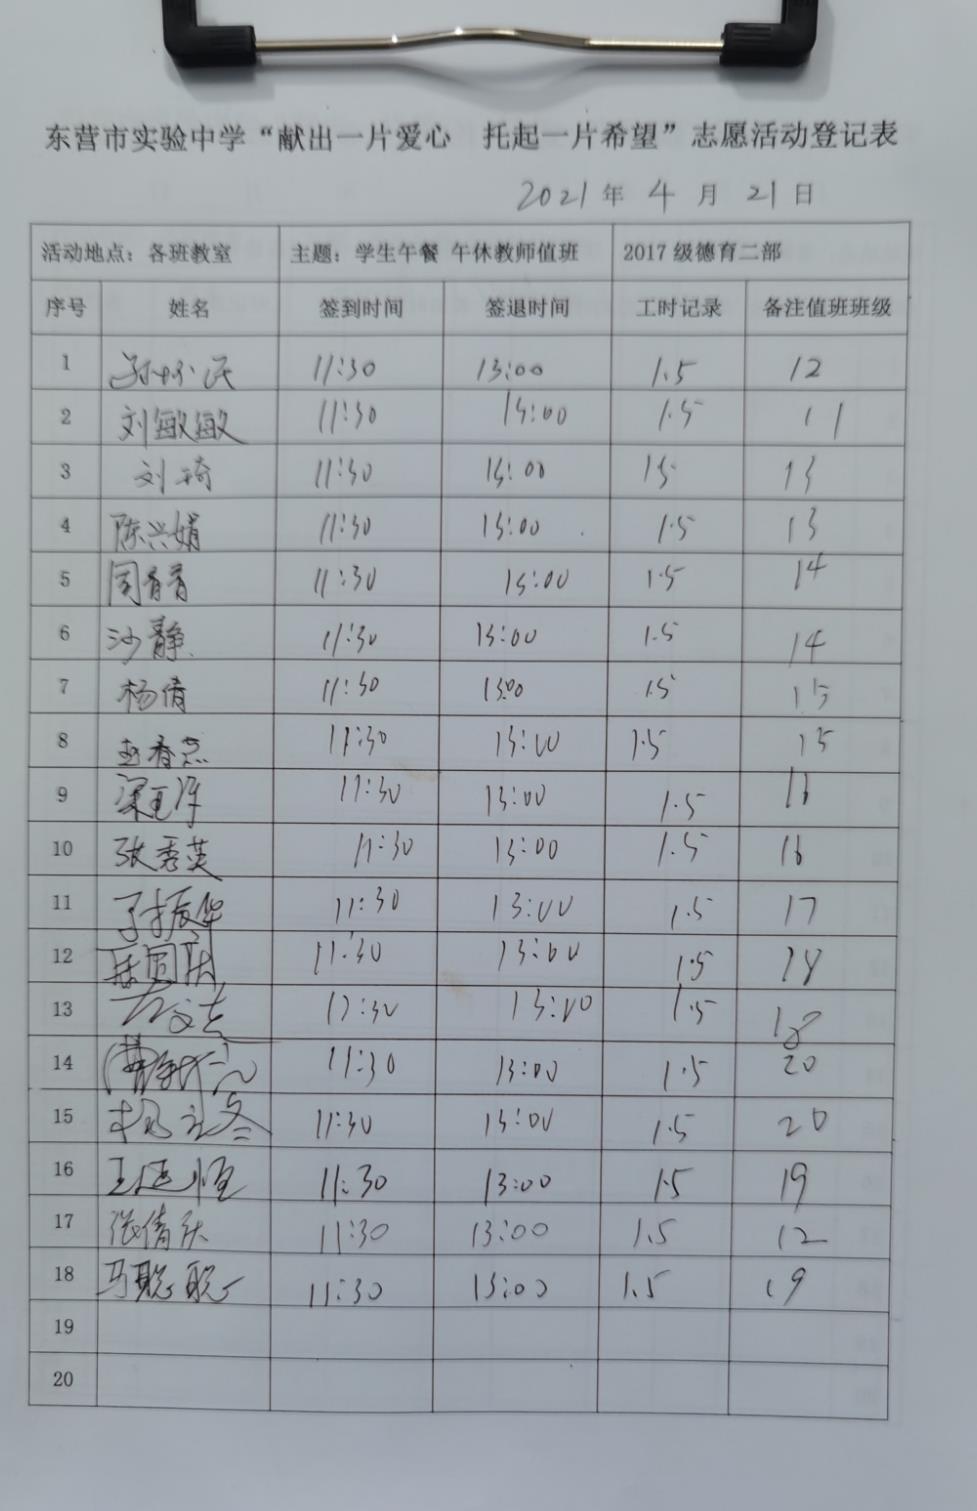 东营市实验中学“献出一片爱心 托起一片希望”志愿活动登记表
2021年 4 月 21 日
活动地点：各班教室 主题：学生午餐 午休教师值班 2017级德育二部
序号 姓名 签到时间 签退时间 工时记录 备注值班班级
1 11:30 13:00 1.5 12
2 刘敏敏 11:30 13:00 1.5 11
3 刘琦 11:30 13:00 15 13
4 陈兴娟 11:30 13:00 1.5 13
5 周青青 11:30 13:00 1.5 14
6 沙静 11:30 13:00 1.5 14
7 杨倩 11:30 13:00 1.5 15
8 赵春燕 11:30 13:00 1.5 15
9 11:30 13:00 1.5 16
10 张秀英 11:30 13:00 1.5 16
11 振华 11:30 13:00 1.5 17
12 11:30 13:00 1.5 18
13 11:30 13:00 1.5 18
14 11:30 13:00 1.5 20
15 11:30 13:00 1.5 20
16 王延恒 11:30 13:00 1.5 19
17 张倩 11:30 13:00 1.5 12
18 马聪聪 11:30 13:00 1.5 19
19
20